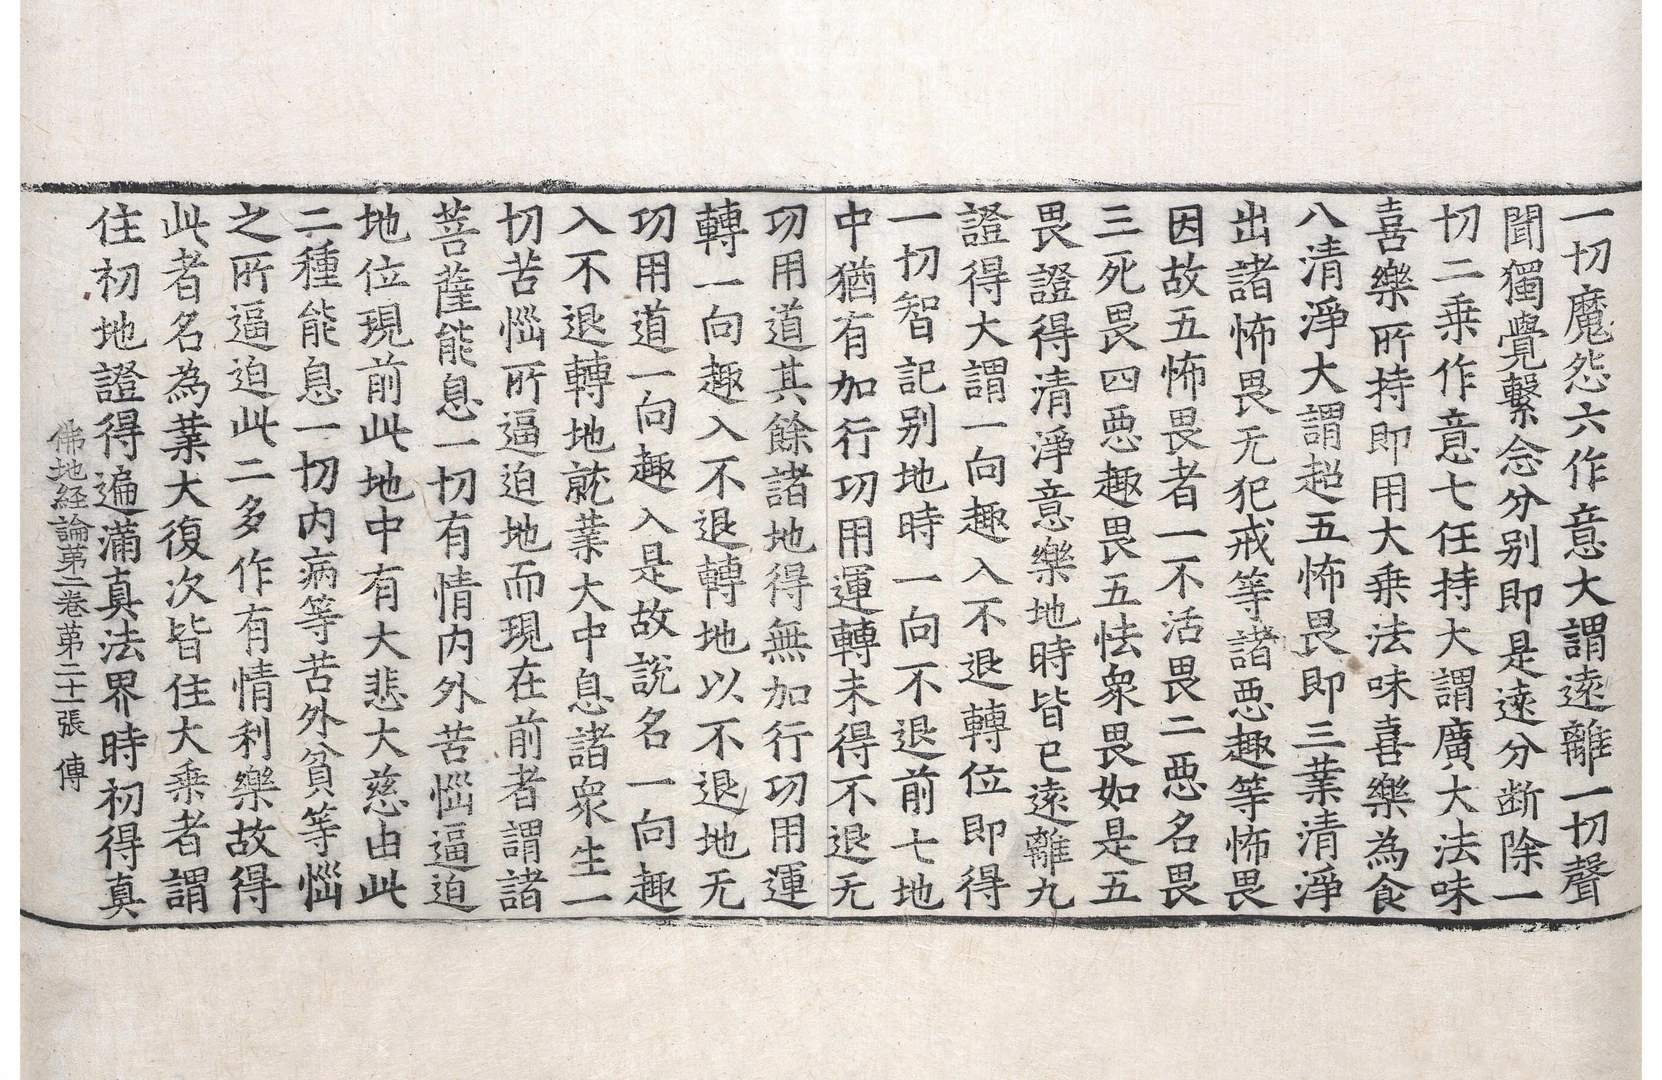 一切魔怨六作意大謂遠離一切聲
聞獨覺繫念分别即是遠分断除一
切二乗作意七任持大謂廣大法味
喜樂所持即用大乗法味喜樂為食
八清淨大謂超五怖畏即三業清淨
出諸怖畏无犯戒等諸惡趣等怖畏
因故五怖畏者一不活畏二惡名畏
三死畏四惡趣畏五怯衆畏如是五
畏證得清淨意樂地時皆已遠離九
證得大謂一向趣入不退轉位即得
一切智記别地時一向不退前七地
中猶有加行功用運轉未得不退无
功用道其餘諸地得無加行功用運
轉一向趣入不退轉地以不退地无
功用道一向趣入是故說名一向趣
入不退轉地就業大中息諸衆生一
切苦惱所逼迫地而現在前者謂諸
菩薩能息一切有情内外苦惱逼迫
地位現前此地中有大悲大慈由此
二種能息一切内病等苦外貧等惱
之所逼迫此二多作有情利樂故得
此者名為業大復次皆住大乗者謂
住初地證得遍滿真法界時初得真
佛地経論第二卷第二十一張 傅